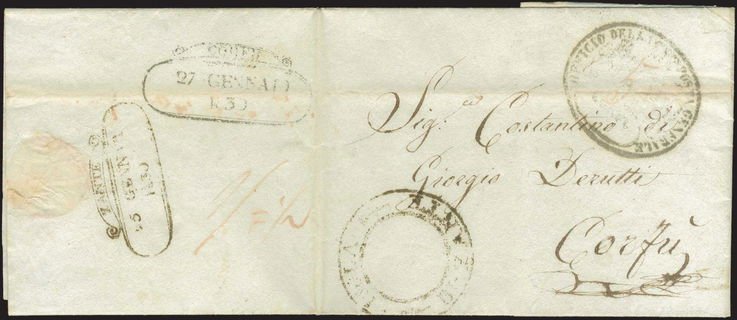 CORFU
27 GENNAIO
ZANTE
25 GENN
1830
UFFICIO DELLA POSTA GENERALE
Sig.r Costantino di
Giorgio Derutti
Corfù